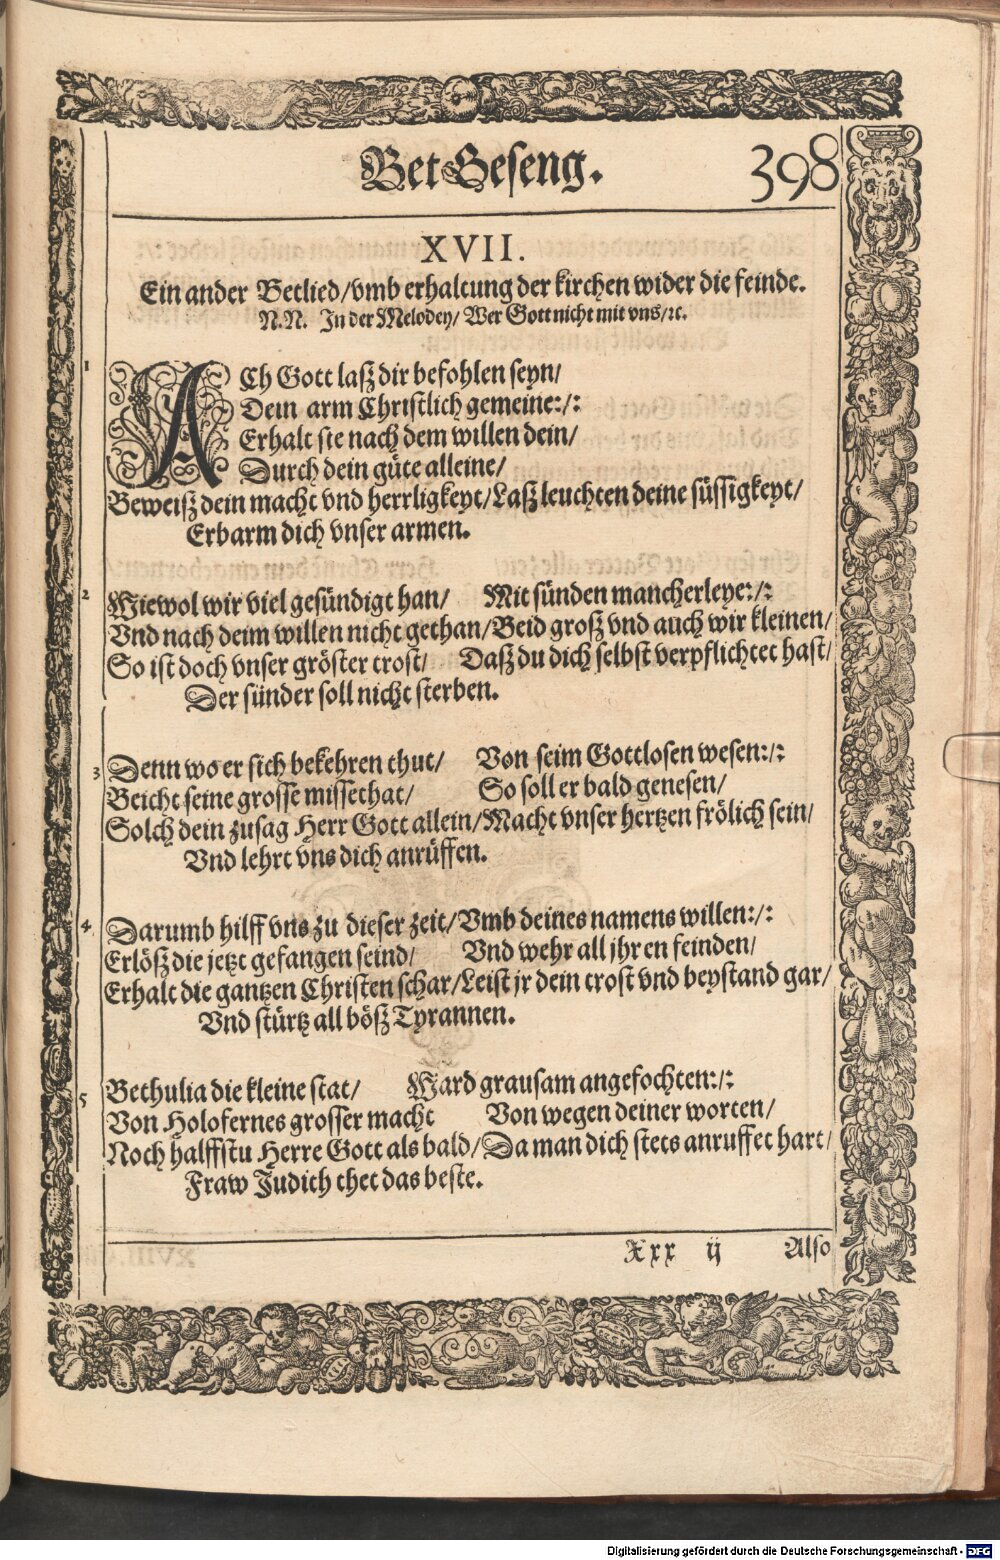 BetGeseng.
398
XVII.
Ein ander Betlied/vmb erhaltung der kirchen wider die feinde.
N.N. In der Melodey/ Wer Gott nicht mit vns/ꝛc.
1 ACh Gott laß dir befohlen seyn/
Dein arm Christlich gemeine:/:
Erhalt sie nach dem willen dein/
Durch dein güte alleine/
Beweiß dein macht vnd herrligkeyt/Laß leuchten deine süssigkeyt/
Erbarm dich vnser armen.
2 Wiewol wir viel gesündigt han/ Mit sünden mancherleye:/:
Vnd nach deim willen nicht gethan/Beid groß vnd auch wir kleinen/
So ist doch vnser gröster trost/ Daß du dich selbst verpflichtet hast/
Der sünder soll nicht sterben.
3 Denn wo er sich bekehren thut/ Von seim Gottlosen wesen:/:
Beicht seine grosse missethat/ So soll er bald genesen/
Solch dein zusag Herr Gott allein/Macht vnser hertzen frölich sein/
Vnd lehrt vns dich anrüffen.
4 Darumb hilff vns zu dieser zeit/Vmb deines namens willen:/:
Erlöß die jetzt gefangen seind/ Vnd wehr all jhren feinden/
Erhalt die gantzen Christen schar/Leist jr dein trost vnd beystand gar/
Vnd stürtz all böß Tyrannen.
5 Bethulia die kleine stat/ Ward grausam angefochten:/:
Von Holofernes grosser macht Von wegen deiner worten/
Noch halffstu Herre Gott als bald/Da man dich stets anruffet hart/
Fraw Judich thet das beste.
Xxx ij Also
Digitalisierung gefördert durch die Deutsche Forschungsgemeinschaft - DFG